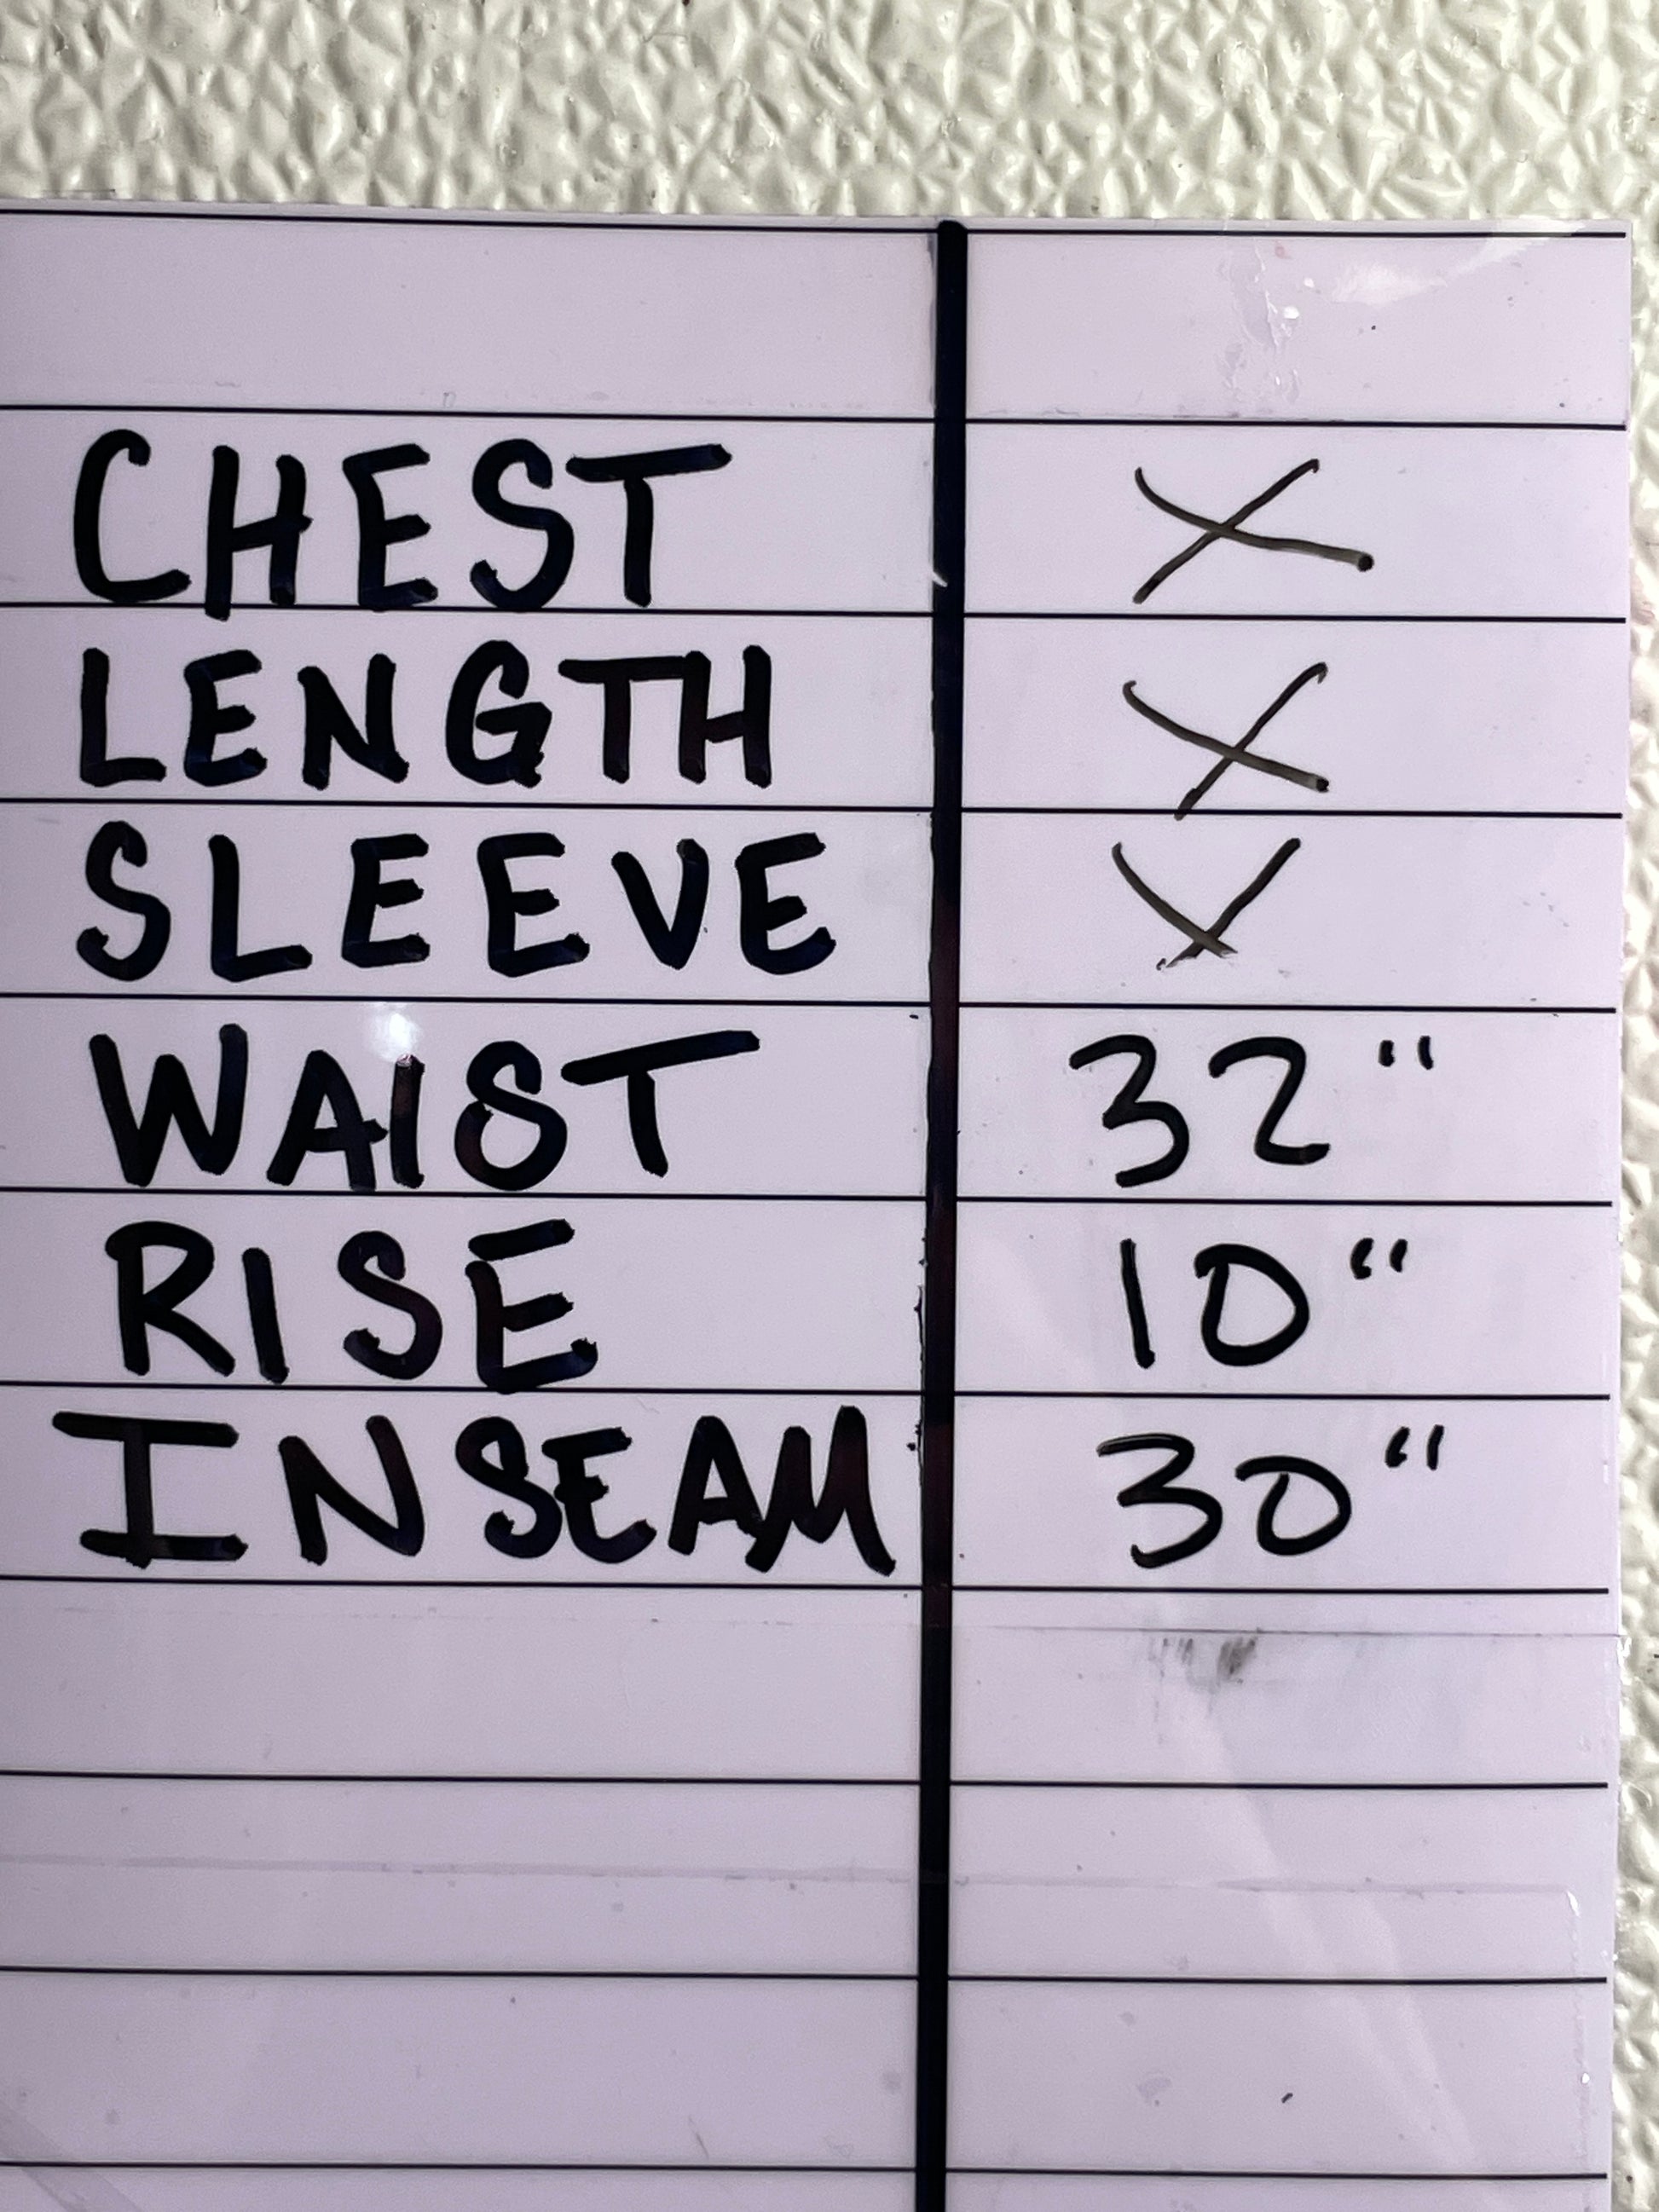 CHEST X
LENGTH X
SLEEVE X
WAIST 32"
RISE 10"
INSEAM 30"